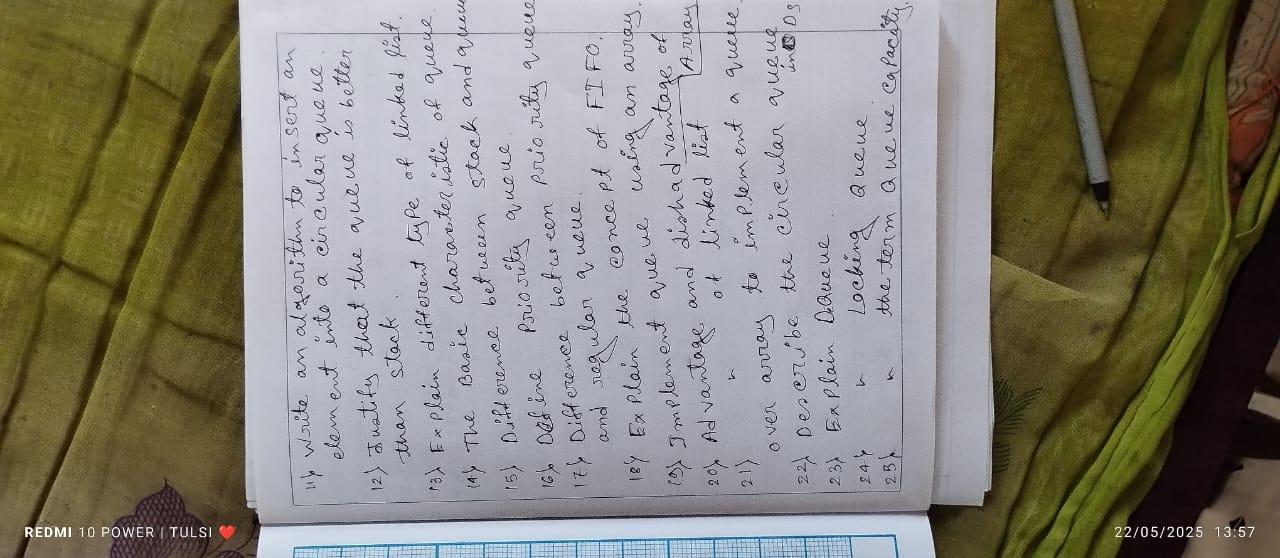 11) Write an algorithm to insert an
element into a circular queue.
12) Justify that the queue is better
than stack.
13) Explain different type of linked list.
14) The Basic characteristic of queue.
15) Difference between stack and queue
16) Define Priority queue.
17) Difference between priority queue
and regular queue.
18) Explain the concept of FIFO.
19) Implement queue using an array.
20) Advantage and dishadvantage of
Array
21) " of linked list
over array to implement a queue.
22) Describe the circular queue
in DS
23) Explain DQueue
24) " Locking Queue.
25) " the term Queue Capacity.
REDMI 10 POWER | TULSI ❤
22/05/2025 13:57